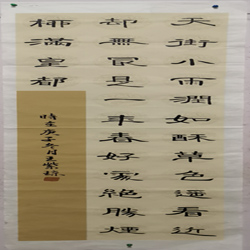 天街小雨潤如酥草色遥看近
却無㝡是一年春好處絶勝煙
柳滿皇都
時在庚子冬月王紫